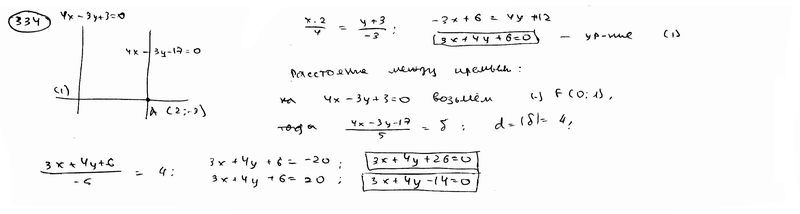 334
4x - 3y + 3 = 0
4x - 3y - 17 = 0
(1)
A (2; -3)
x - 2 / 4 = y + 3 / -3 ; -3x + 6 = 4y + 12
3x + 4y + 6 = 0 — ур-ние (1)
Расстояние между прямыми:
на 4x - 3y + 3 = 0 возьмём (·) F (0; 1),
тогда 4x - 3y - 17 / 5 = δ ; d = |δ| = 4;
3x + 4y + 6 / -5 = 4; 3x + 4y + 6 = -20 ; 3x + 4y + 26 = 0
3x + 4y + 6 = 20 ; 3x + 4y - 14 = 0